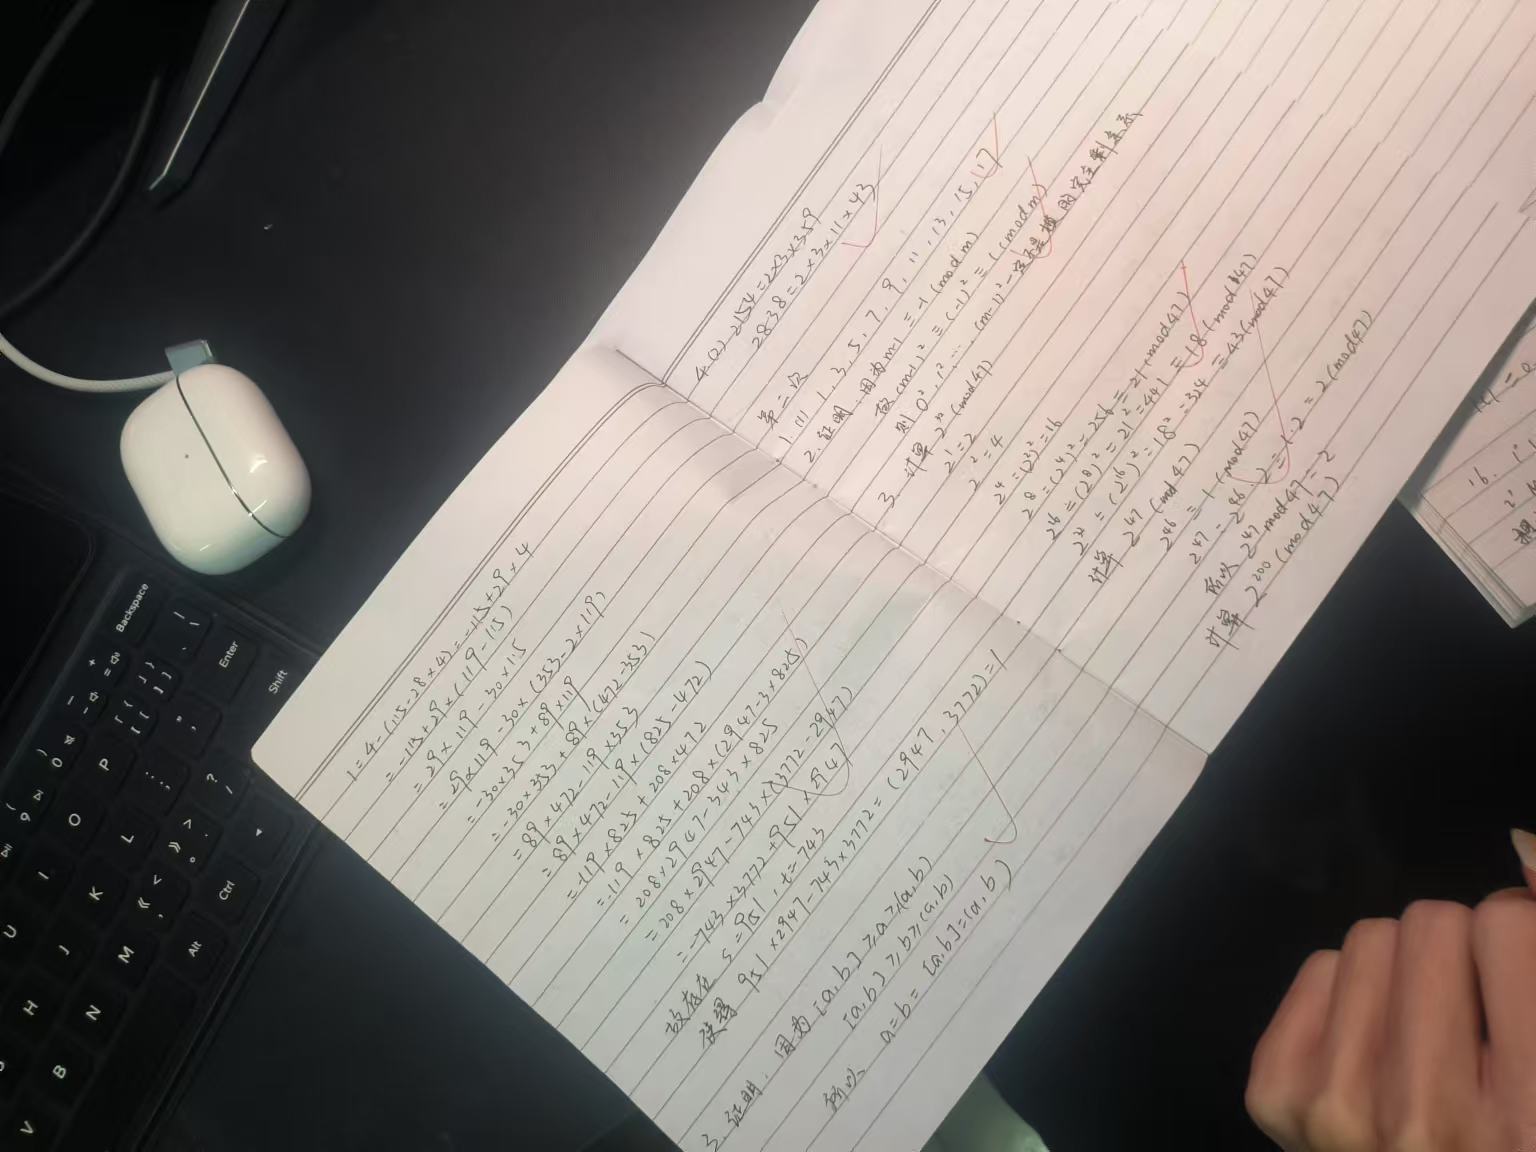 1=4-(115-28×4)=-115+29×4
=-115+29×(119-115)
=29×119-30×115
=29×119-30×(353-2×119)
=-30×353+89×119
=-30×353+89×(472-353)
=89×472-119×353
=89×472-119×(825-472)
=-119×825+208×472
=-119×825+208×(2947-3×825)
=208×2947-743×825
=208×2947-743×(3772-2947)
=-743×3772+951×2947
故存在 s=951,t=-743
使得 951×2947-743×3772=(2947,3772)=1
3.证明.因为[a,b]≥a≥(a,b)
[a,b]≥b≥(a,b)
所以 a=b=[a,b]=(a,b)
4.(2) 2154=2×3×359
2838=2×3×11×43
第二次
1.(1) 1,3,5,7,9,11,13,15,17
2.证明:因为m-1≡-1(mod m)
故(m-1)²≡(-1)²≡1(mod m)
则0²,1²,…,(m-1)²一定不是模m的完全剩余系
3.计算2³²(mod47)
2¹=2
2²=4
2⁴=(2²)²=16
2⁸=(2⁴)²=256≡21(mod47)
2¹⁶=(2⁸)²=21²=441≡18(mod47)
2³²=(2¹⁶)²=18²=324≡43(mod47)
计算 2⁴⁷(mod47)
2⁴⁶≡1(mod47)
2⁴⁷=2⁴⁶·2≡1·2=2(mod47)
所以 2⁴⁷mod47=2
计算 2²⁰⁰(mod47)
Backspace
Enter
Shift
Ctrl
Alt
P
O
I
U
L
K
J
H
M
N
B
V
0
9